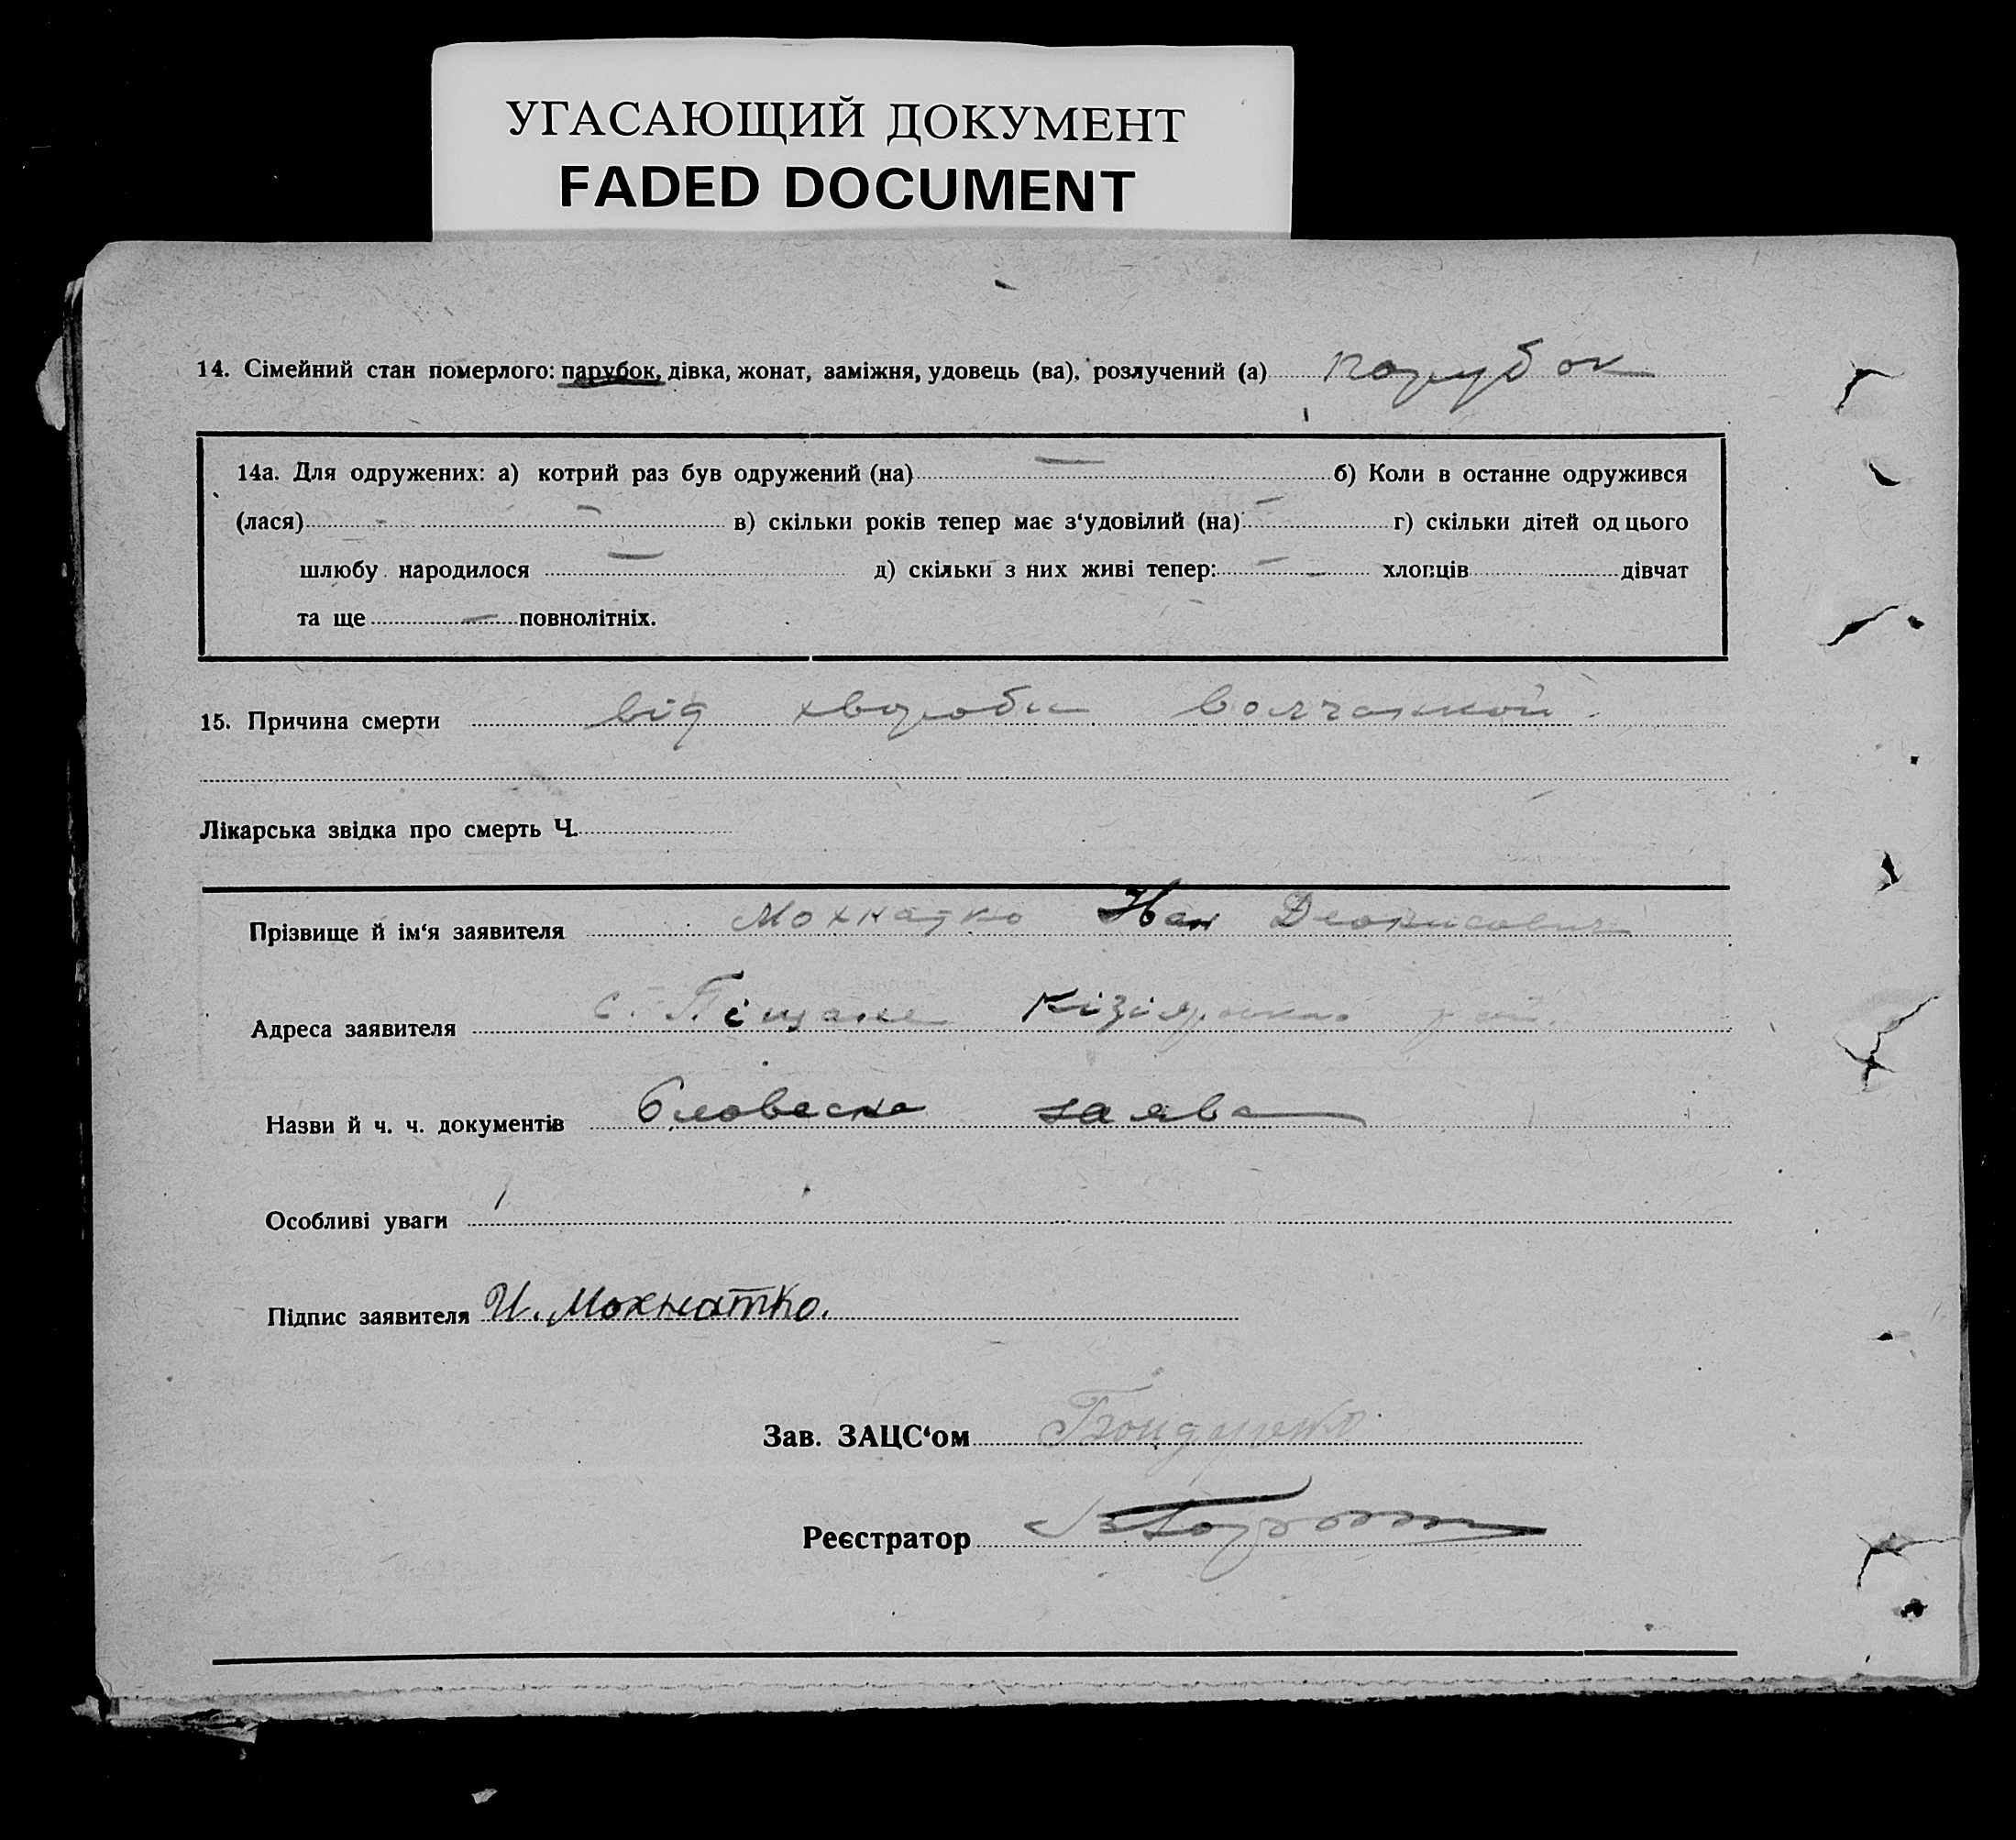 УГАСАЮЩИЙ ДОКУМЕНТ
FADED DOCUMENT
14. Сімейний стан померлого: парубок, дівка, жонат, заміжня, удовець (ва), розлучений (а) парубок
14а. Для одружених: а) котрий раз був одружений (на) — б) Коли в останне одружився
(лася) — в) скільки років тепер має з‘удовілий (на) — г) скільки дітей од цього
шлюбу народилося — д) скільки з них живі тепер: — хлопців дівчат
та ще — повнолітніх.
15. Причина смерти від хвороби волчанкой
Лікарська звідка про смерть Ч.
Прізвище й ім‘я заявителя Мохнатко Иван Денисович
Адреса заявителя с. Піщане Кізіярська рай.
Назви й ч. ч. документів Словесна заява
Особливі уваги
Підпис заявителя И. Мохнатко.
Зав. ЗАЦС‘ом
Реєстратор